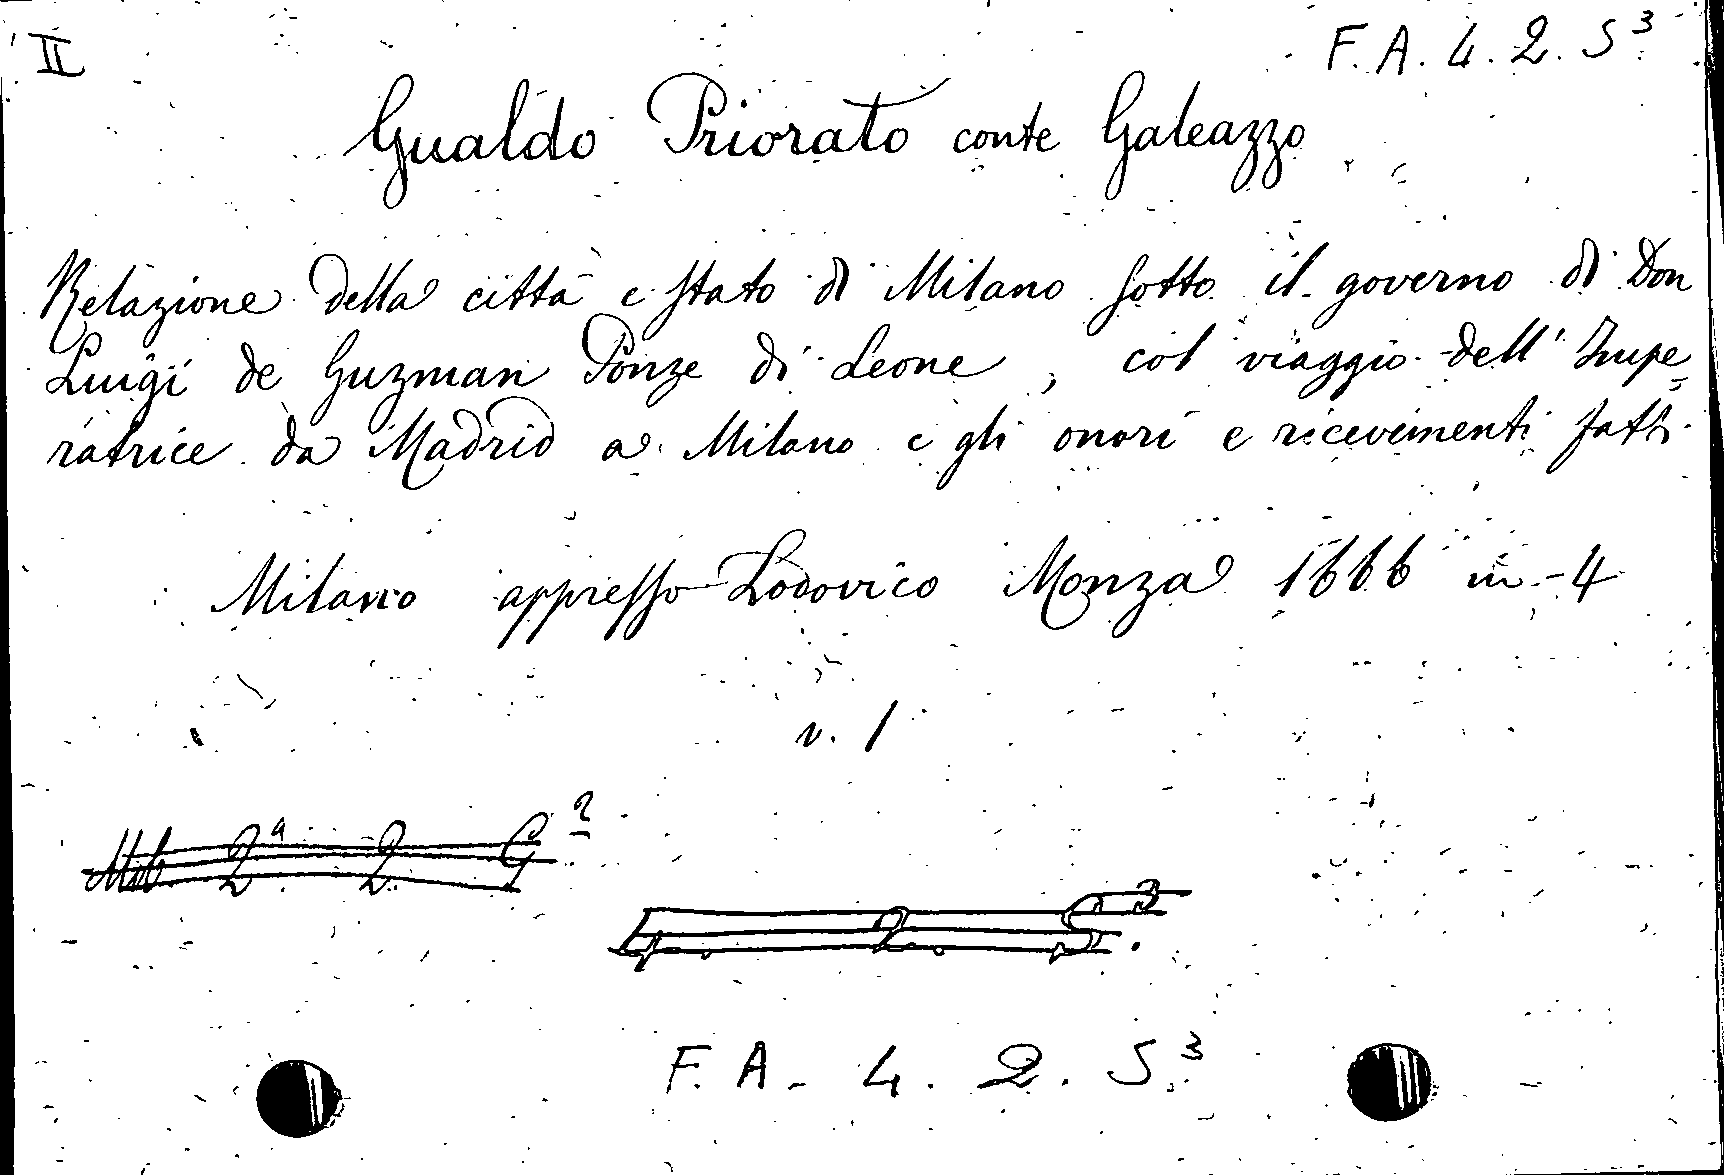 II
F. A. 4. 2. S³
Gualdo Priorato conte Galeazzo
Relazione della città e stato di Milano sotto il governo di Don
Luigi de Guzman Ponze di Leone, col viaggio dell'Impe=
ratrice da Madrid a Milano e gli onori e ricevimenti fatti
Milano appresso Lodovico Monza 1666 in-4
v. 1
2ª 2 G 2
4. 2. S. 3
F. A. 4. 2. S³